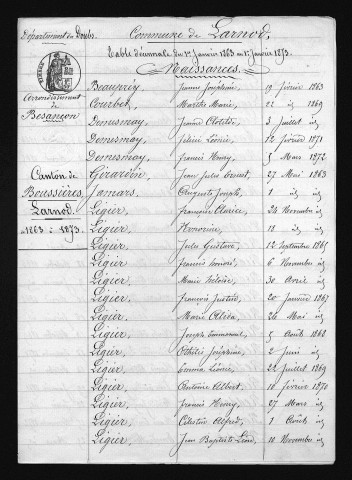 Département du Doubs. Commune de Larnod.
Table décennale du 1er Janvier 1863 au 1er Janvier 1873.
Naissances.
Arrondissement
de
Besançon
Canton de
Boussières.
Larnod.
1863 à 1873.
Beauprey, Jeanne Joséphine 19 février 1863
Courbet, Marthe Marie, 22 id 1869
Demesmay, Clotilde, 3 Juillet id
Demesmay, Léonie, 12 février 1871
Demesmay, francis Henry, 5 Mars 1872
Girardin, Jean Jules Ernest, 27 Mai 1863
Jamars, Auguste Joseph, 1 id id
Ligier, françoise Clarisse, 24 Novembre id
Ligier, Honorine, 18 id id
Ligier, Jules Gustave, 12 Septembre 1865
Ligier, francis Honoré, 6 Novembre id
Ligier, Marie Héloïse, 30 Avril id
Ligier, francois Gustave, 20 Janvier 1867
Ligier, Marie Olida, 26 Mai id
Ligier, Joseph Emmanuel, 5 Août 1868
Ligier, Othilie Joséphine, 2 Juin id
Ligier, Emma Léonie, 22 Juillet 1869
Ligier, Antoine Albert, 10 février 1870
Ligier, francis Henry, 27 Mars id
Ligier, Célestin Alfred, 1 Août id
Ligier, Jean Baptiste Léon, 10 Novembre id